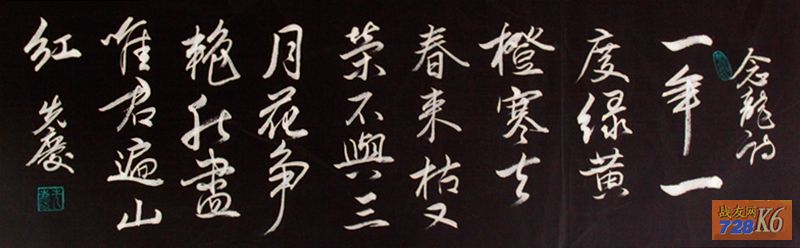 念龍詩
一年一
度绿黄
橙寒去
春来枯又
荣不與三
月花争
艳秋盡
唯君遍山
红 先慶
战友网
728 K6